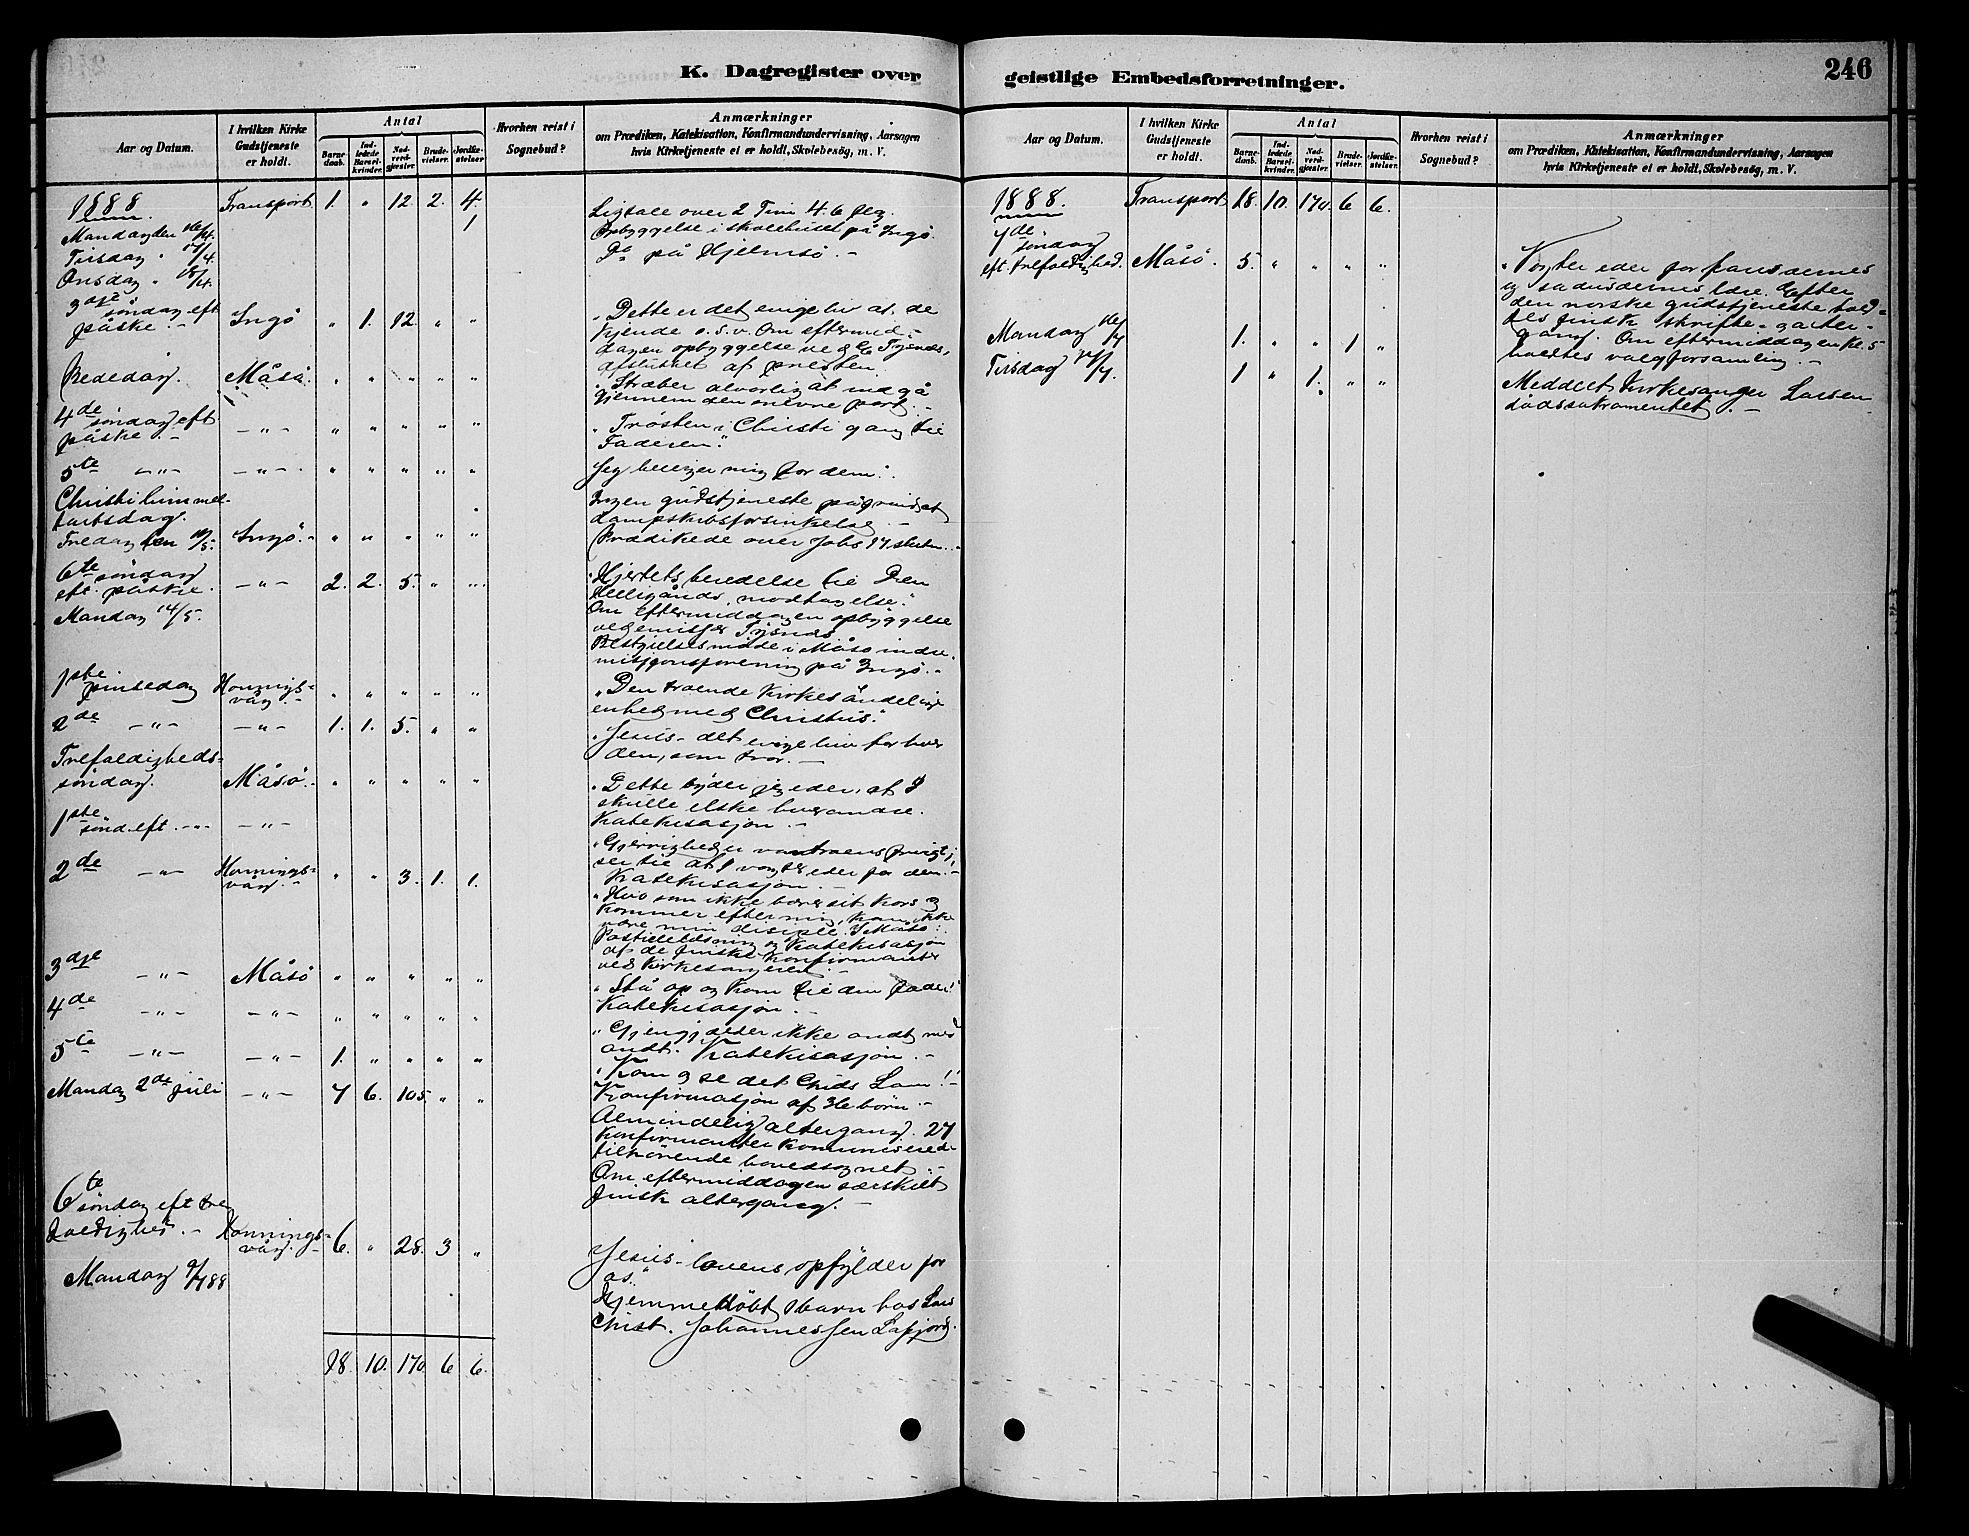 K. Dagregister over
Antal
Aar og Datum.
I hvilken Kirke
Gudstjeneste
er holdt.
Barne-
daab.
Ind-
ledede
Barsel-
kvinder.
Nad-
verd-
gjester.
Brude-
vielser.
Jordfæ-
stelser
Hvorhen reist i
Sognebud?
Anmærkninger
om Prædiken, Katekisation, Konfirmandundervisning, Aarsagen
hvis Kirketjeneste ei er holdt, Skolebesög, m. V.
1888 Transport 1. " 12. 2. 4. Ligtale over 2 Tim 4.6 flg.
Mandag den 16/4. 1 Opbyggelse i skolehuset på Ingö.
Tirsdag " 17/4. Do på Hjelmsö. -
Onsdag " 18/4.
3dje söndag eft
påske. - Ingö " 1. 12. " "
"Dette er det evige liv at de
kjende o.s.v. Om eftermid-
dagen opbyggelse ved Tjsnds,
afsluttet af presten.
Bededag. Måsö. " " " " "
"Stræber alvorlig at indgå
gjennem den snevre port. -
4de söndag eft
påske. - -"- " " " " "
"Trösten i Christi gang til
Faderen".
5te -"- -"- " " " " " Jeg helliger mig for dem".
Christi himmel-
fartsdag.
Ingen gudstjeneste på grund af
dampskibsforsinkelse. -
Fredag den 11/5. Ingö. " " " " " Prædikede over Johs 17 slutn. -
6te söndag
eft. påske. -"- 2. 2. 5. " "
"Hjertets beredelse til Den
Helligånds modtagelse."
Om eftermiddagen opbyggelse
ved emissær Tjsnds
Mandag 14/5.
Bestyrelsesmöde i Måsö indre-
missjonsforening på Ingö. -
1ste pinsedag Honnings-
våg. - " " " " "
"Den troende kirkes åndelige
enhed med Christus."
2de -"- -"- 1. 1. 5. " "
"Jesus - det evige liv for hver
den, som tror. -
Trefoldigheds-
söndag. Måsö. " " " " "
"Dette byder jeg eder, at I
skulle elske hverandre.
Katekisasjon. -
1ste sönd. eft. -"- -"-
"Gjerrighed er vantroens frugt,
ser til at I vogter eder for den. -
Katekisasjon. -
2de -"- Honnings-
våg. - " " 3. 1. 1.
"Hvo som ikke bærer sit kors og
kommer efter mig, kan ikke
være min discipel. I Måsö:
Postillelæsning og Katekisasjon
af de finske Konfirmanter
ved kirkesangeren. -
3dje -"- Måsö " " " " "
"Stå op og kom til din fader!"
Katekisasjon. -
4de -"- -"- " " " " "
"Gjengjælder ikke ondt med
ondt. Katekisasjon. -
5te -"- -"- 1. " " " "
"Kom og se det Guds Lam!"
Mandag 2de juli -"- 7 6. 105. " "
Konfirmasjon af 36 börn. -
Almindelig altergang. 27
konfirmanter kommuniserede
tilhörende hovedsognet. -
Om eftermiddagen særskilt
finsk altergang. -
6te söndag eft tre
foldighed. - Honnings-
våg. - 6. " 28. 3 "
Jesus - lovens opfylder for
os."
Mandag 9/7 88
Hjemmedöbt 1 barn hos Lars
Christ. Johannessen Lafjord.
18. 10. 170. 6 6.
geistlige Embedsforretninger.
246
Antal
Aar og Datum.
I hvilken Kirke
Gudstjeneste
er holdt.
Barne-
daab.
Ind-
ledede
Barsel-
kvinder.
Nad-
verd-
gjester.
Brude-
vielser.
Jordfæ-
stelser.
Hvorhen reist i
Sognebud?
Anmærkninger
om Prædiken, Katekisation, Konfirmandundervisning, Aarsagen
hvis Kirketjeneste ei er holdt, Skolebesög, m. V.
1888. Transport 18. 10. 170. 6 6.
7de söndag
eft. trefoldighed. Måsö. 5. " " " "
"Vogter eder for farisæernes
og sadusæernes lære. Efter
den norske gudstjeneste hold-
tes finsk skrifte- og alter-
gang. Om eftermiddagen kl. 5
holdtes valgforsamling. -
Mandag 1. " " 1 "
Tirsdag 1 " 1. " "
Meddelt kirkesanger Larsen
dödssakramentet. -